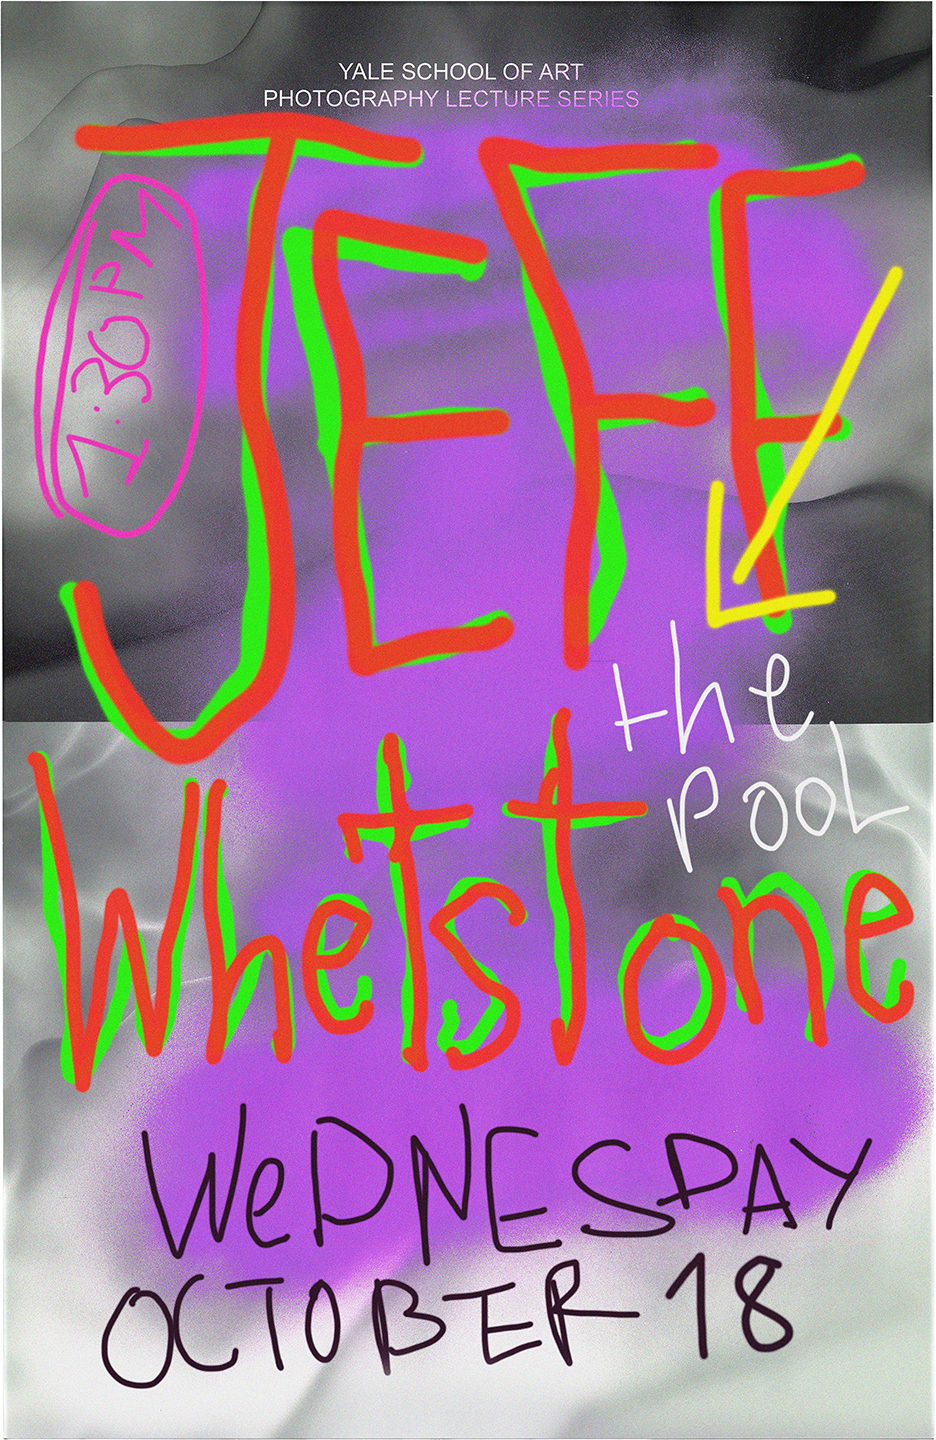 YALE SCHOOL OF ART
PHOTOGRAPHY LECTURE SERIES
JEFF
1:30PM
the
Pool
Whetstone
WeDNESDAY
OCTOBER 18